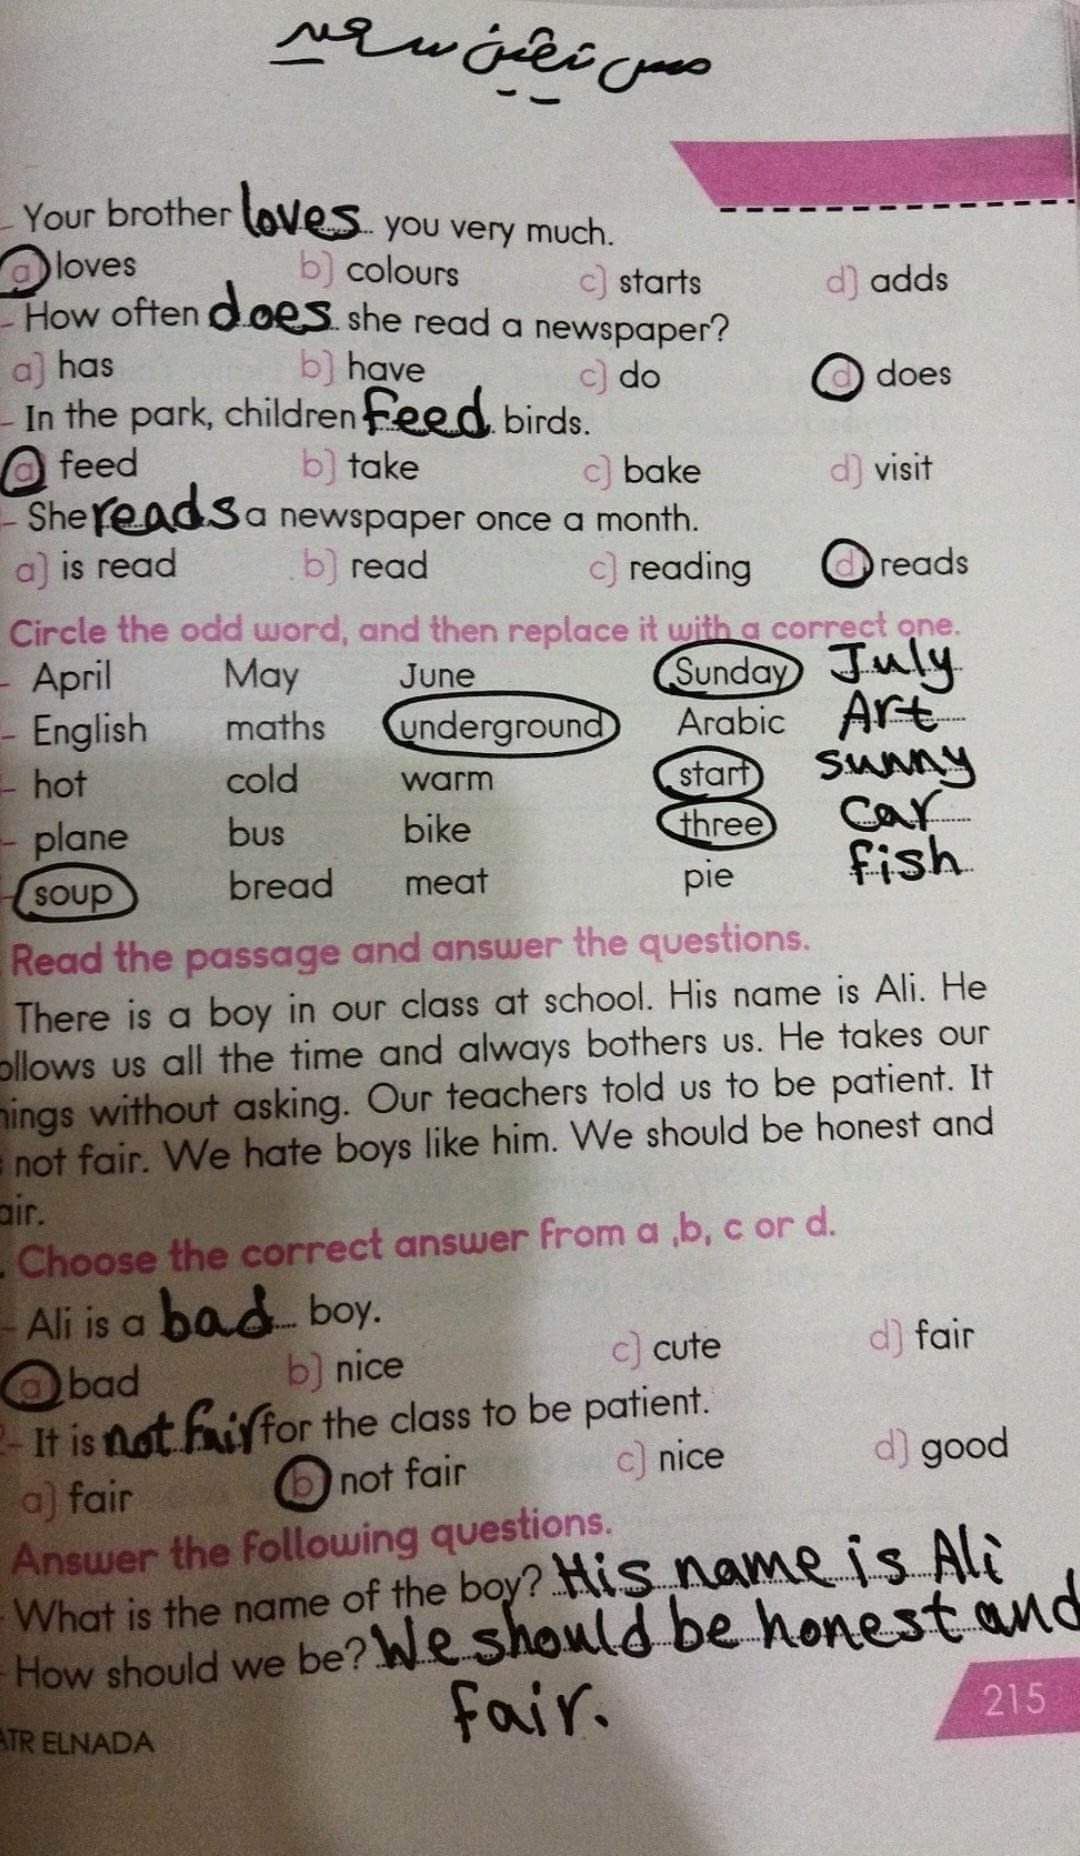 مس يقين سعيد
Your brother loves you very much.
a) loves b) colours c) starts d) adds
How often does she read a newspaper?
a) has b) have c) do d) does
In the park, children feed birds.
a) feed b) take c) bake d) visit
She reads a newspaper once a month.
a) is read b) read c) reading d) reads
Circle the odd word, and then replace it with a correct one.
April May June Sunday July
English maths underground Arabic Art
hot cold warm start sunny
plane bus bike three car
soup bread meat pie fish
Read the passage and answer the questions.
There is a boy in our class at school. His name is Ali. He
ollows us all the time and always bothers us. He takes our
ings without asking. Our teachers told us to be patient. It
not fair. We hate boys like him. We should be honest and
air.
Choose the correct answer from a ,b, c or d.
Ali is a bad boy.
a) bad b) nice c) cute d) fair
- It is not fair for the class to be patient.
a) fair b) not fair c) nice d) good
Answer the following questions.
What is the name of the boy? His name is Ali
How should we be? We should be honest and
fair.
215
ATR ELNADA